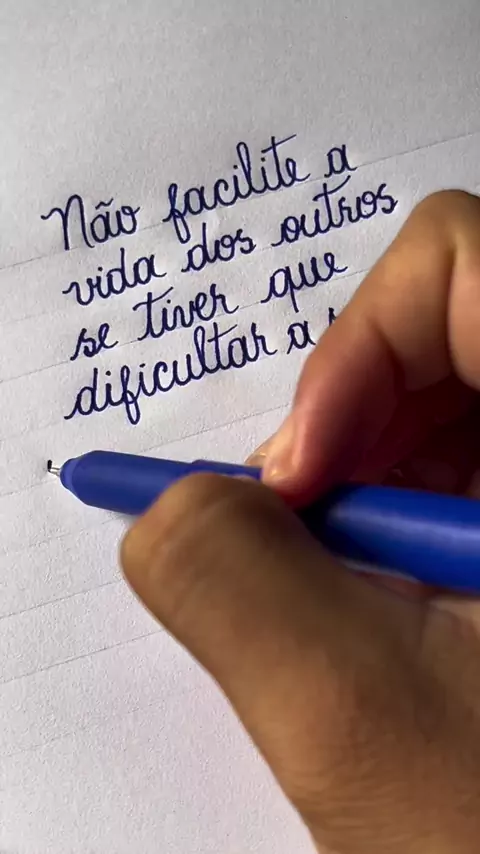 Não facilite a
vida dos outros
se tiver que
dificultar a